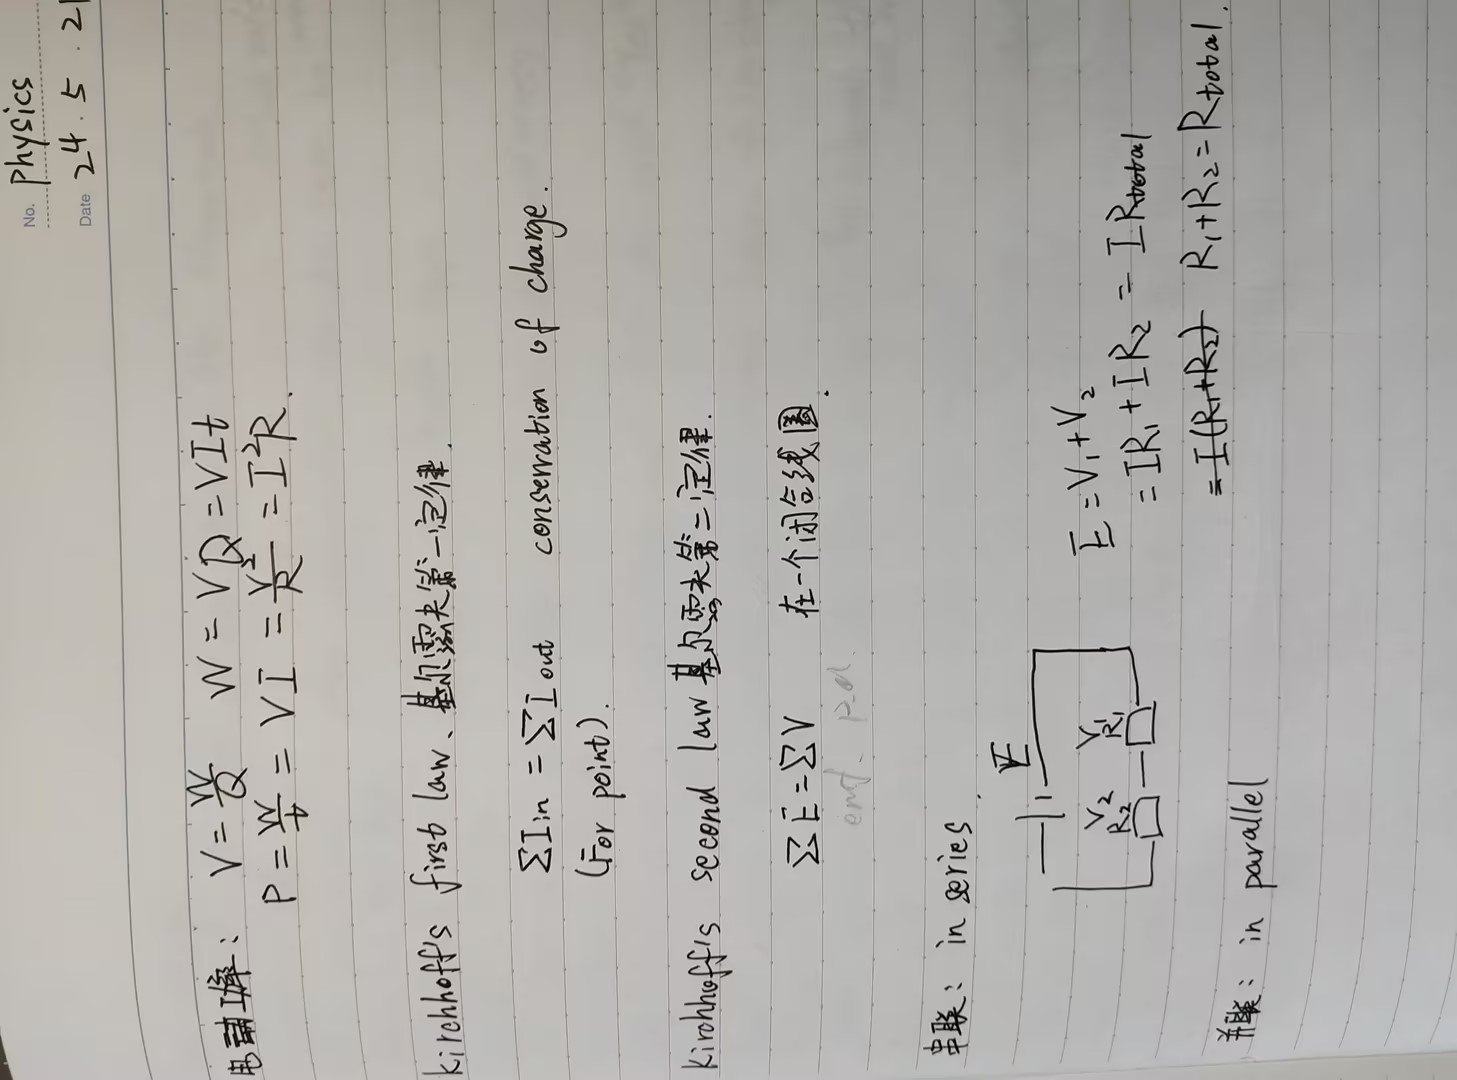 No. Physics
Date 24.5.21
电功率: V = W/Q W = VQ = VIt
P = W/t = VI = V²/R = I²R.
kirchhoff's first law、基尔霍夫第一定律.
ΣIin = ΣIout conservation of charge.
(For point).
kirchhoff's second law 基尔霍夫第二定律.
ΣE = ΣV 在一个闭合线圈.
emf. p.d.
串联: in series
E
V2 V1
R2 R1
E = V1 + V2
= IR1 + IR2 = IRtotal
= I(R1+R2) R1+R2 = Rtotal.
并联: in parallel